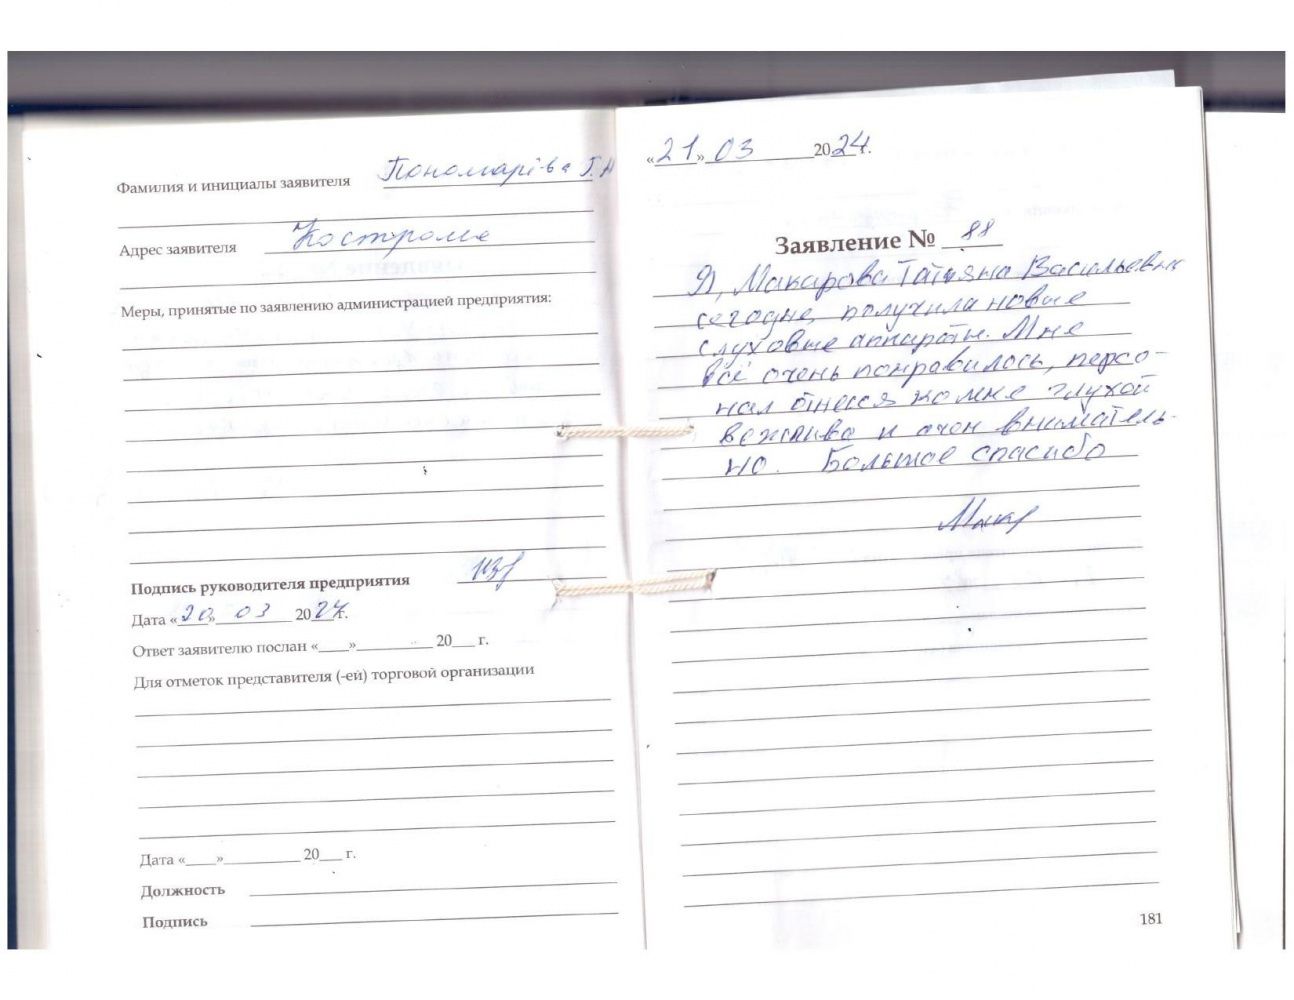 Фамилия и инициалы заявителя Пономарёва Г.Н
Адрес заявителя Кострома
Меры, принятые по заявлению администрацией предприятия:
Подпись руководителя предприятия
Дата «20» 03 2024 г.
Ответ заявителю послан «____»__________ 20___ г.
Для отметок представителя (-ей) торговой организации
Дата «____»__________ 20___ г.
Должность
Подпись
«21» 03 2024 г.
Заявление № 88
Я, Макарова Татьяна Васильевна
сегодня, получила новые
слуховые аппараты. Мне
всё очень понравилось, персо-
нал отнесся ко мне глухой
вежливо и очен внематель-
но. Большое спасибо
Макар
181